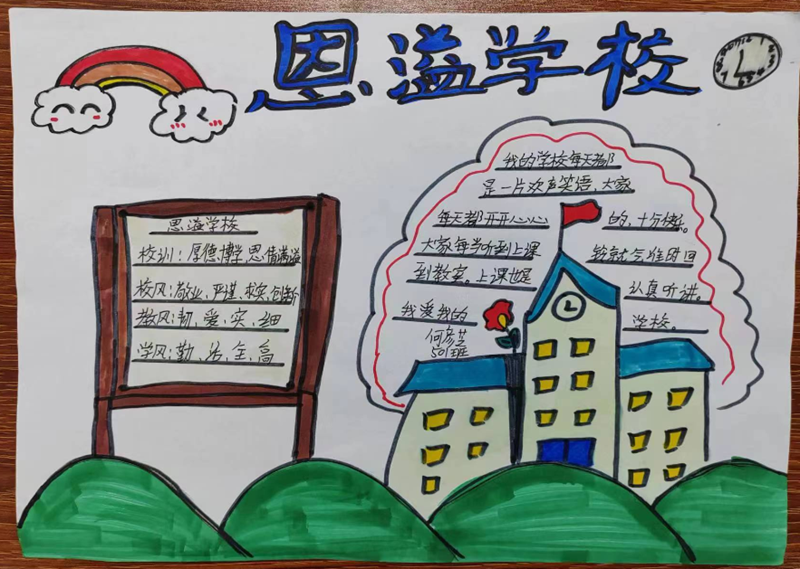 恩溢学校
恩溢学校
校训：厚德、博学、恩情满溢
校风：敬业、严谨、求实、创新
教风：韧、爱、实、细
学风：勤、活、全、高
我的学校每天都
是一片欢声笑语、大家
每天都开开心心的，十分快乐。
大家每当听到上课铃就会准时回
到教室。上课也是认真听讲。
我爱我的学校。
何彦芝
501班